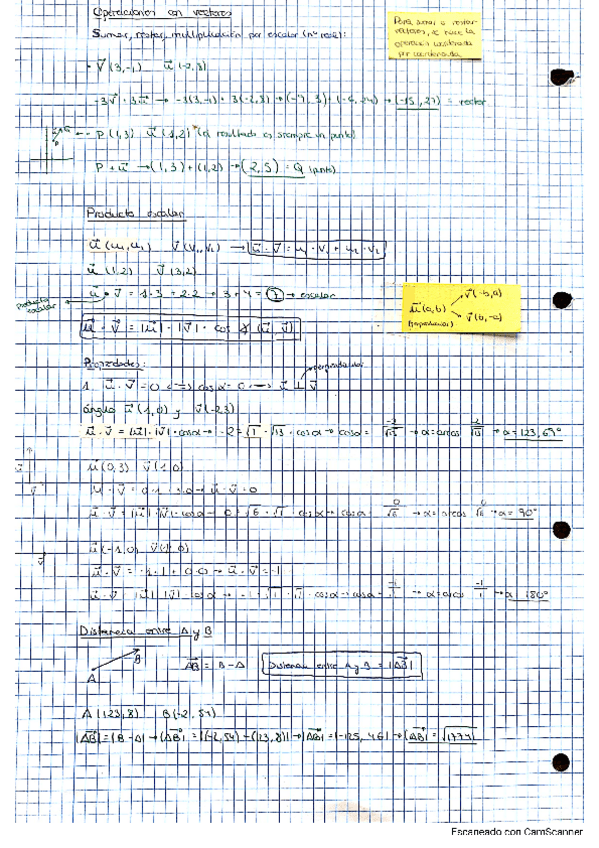 Operaciones con vectores
Sumar, restar, multiplicación por escalar (nº real):
Para sumar o restar
vectores, se hace la
operación coordenada
por coordenada
· v⃗ (3,-1) u⃗ (-2,8)
P (1,3) u⃗ (1,2) (el resultado es siempre un punto)
P + u⃗ → (1,3) + (1,2) → (2,5) = Q (punto)
Producto escalar
u⃗ (u₁,u₂) v⃗ (v₁,v₂) → u⃗ · v⃗ = u₁ · v₁ + u₂ · v₂
u⃗ (1,2) v⃗ (3,2)
Producto escalar ← u⃗ · v⃗ = 1·3 + 2·2 → 3 + 4 = 7 → escalar
u⃗ (a,b) v⃗ (-b,a)
v⃗ (b,-a)
(perpendicular)
u⃗ · v⃗ = |u⃗| · |v⃗| · cos ∡ (u⃗ v⃗)
Propiedades:
perpendicular
1. u⃗ · v⃗ = 0 <=> cos α = 0 <=> u⃗ ⊥ v⃗
ángulo u⃗ (1,0) y v⃗ (-2,3)
u⃗ · v⃗ = |u⃗| · |v⃗| · cos α → -2 = √1 · √13 · cos α → cos α = -2/√13 → α = arcos -2/√13 → α = 123,69°
u⃗ (0,3) v⃗ (1,0)
u⃗ · v⃗ = |u⃗| · |v⃗| · cos α → 0 = √6 · √1 · cos α → cos α = 0/√6 → α = arcos 0/√6 → α = 90°
u⃗ (-1,0) v⃗ (1,0)
u⃗ · v⃗ = -1·1 + 0·0 → u⃗ · v⃗ = -1
Distancia entre A y B
A B AB⃗ = B - A Distancia entre A y B = |AB⃗|
A (123,8) B (-2,54)
|AB⃗| = |B - A| → |AB⃗| = |(-2,54) - (123,8)| → |AB⃗| = |-125, 46|
Escaneado con CamScanner